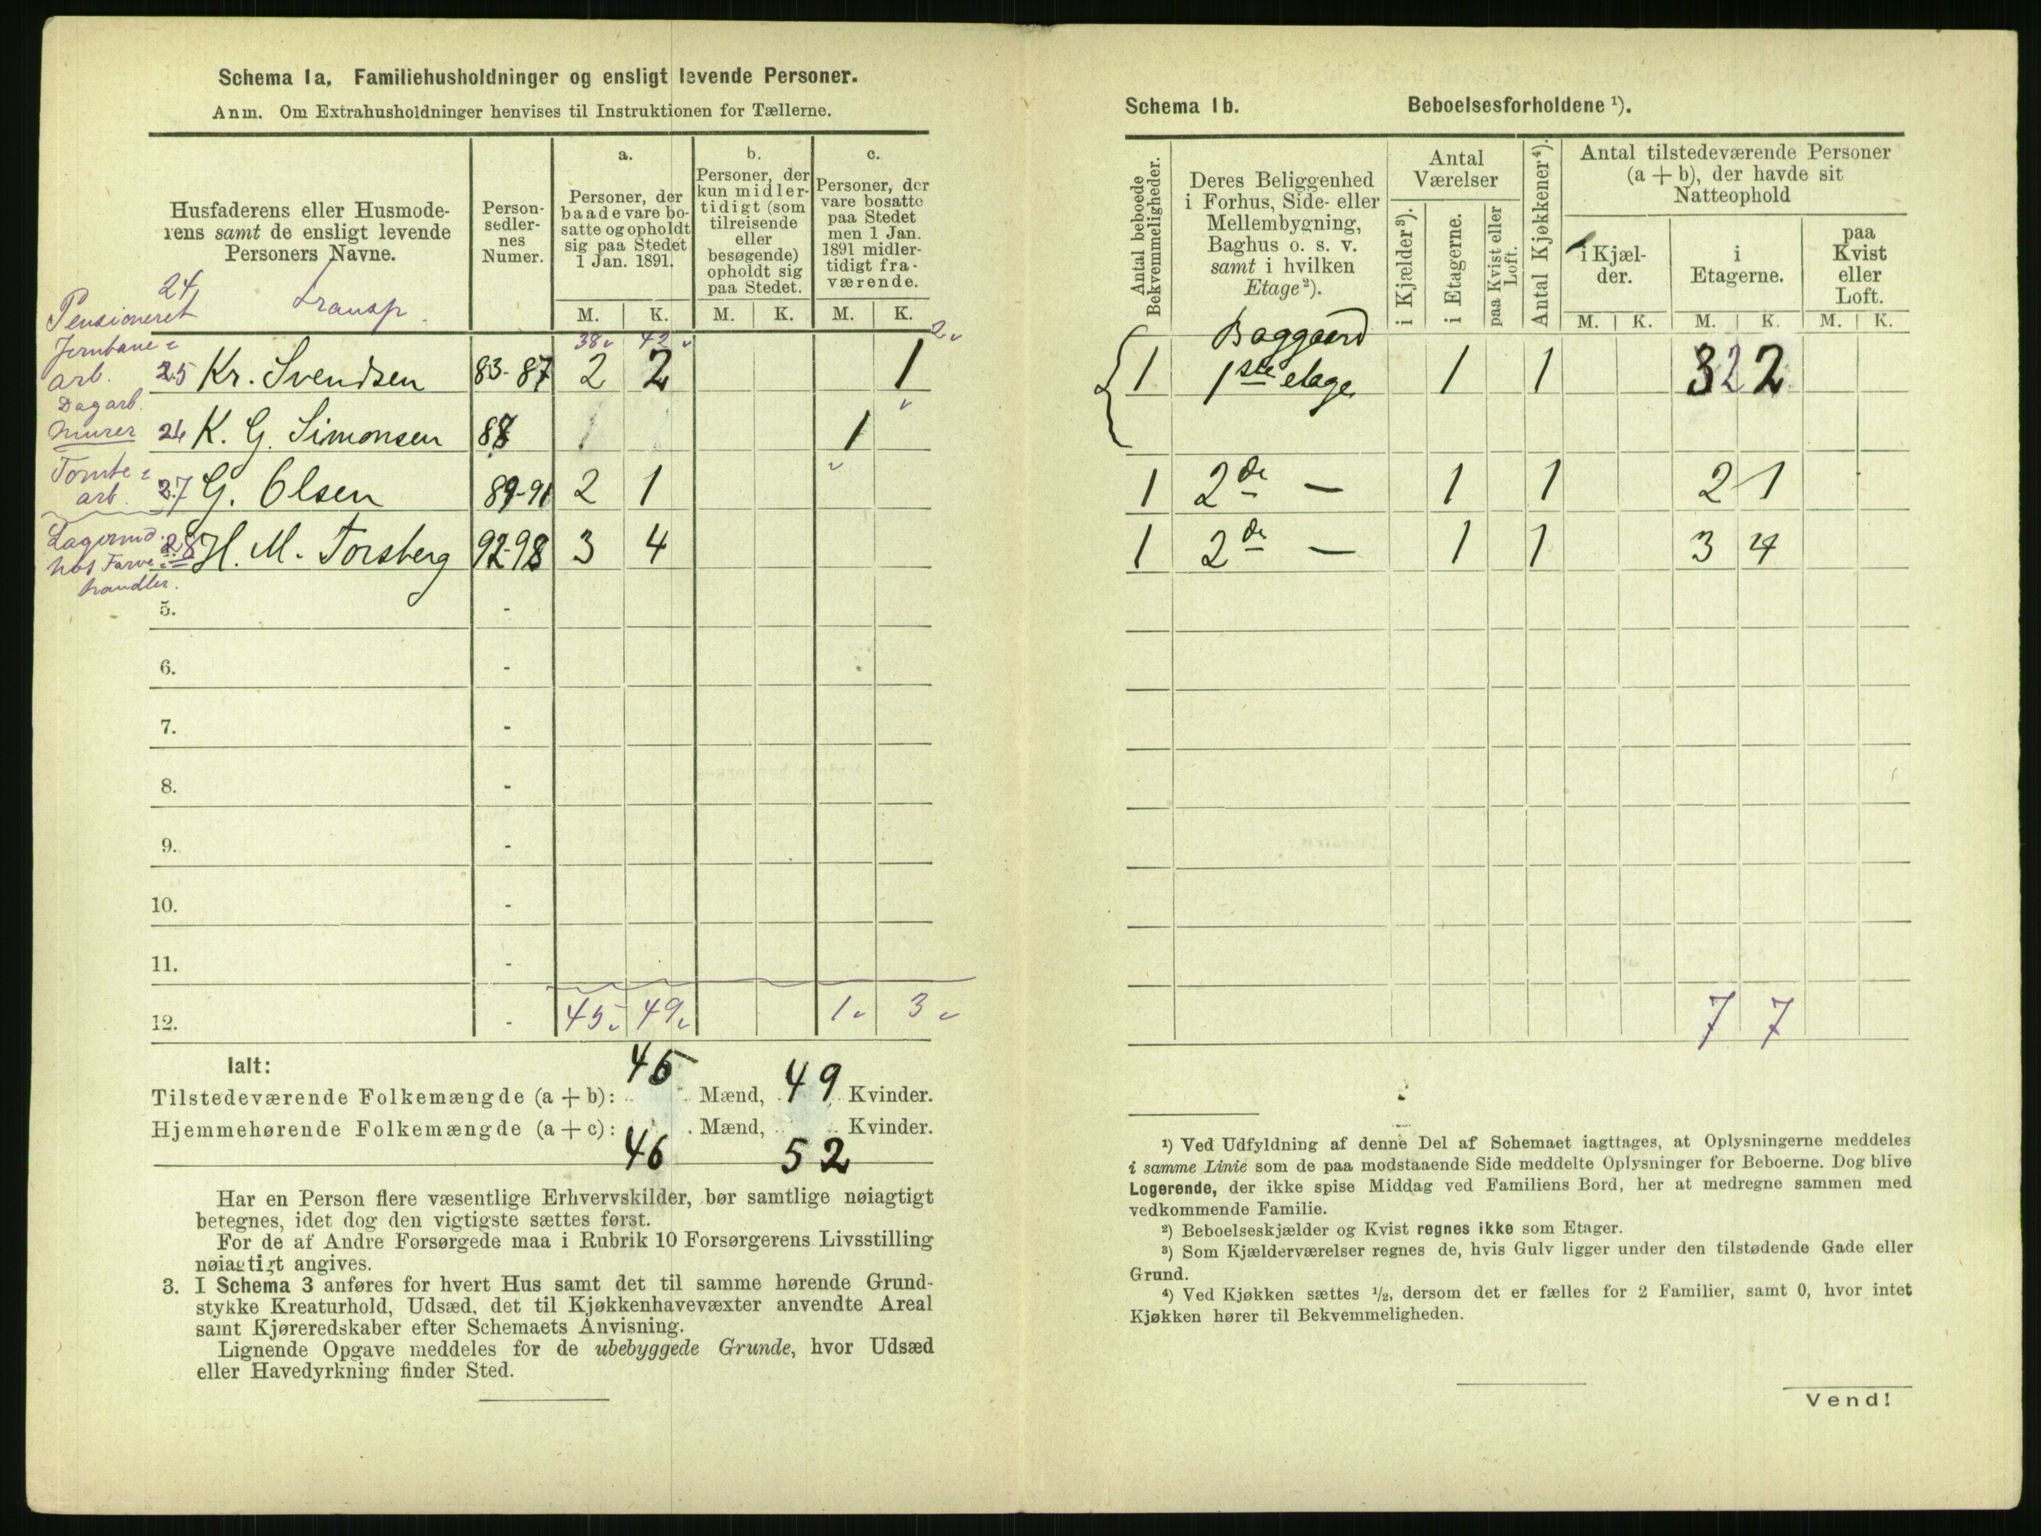 Schema 1a, Familiehusholdninger og ensligt levende Personer.
Anm. Om Extrahusholdninger henvises til Instruktionen for Tællerne.
Husfaderens eller Husmode-
rens samt de ensligt levende
Personers Navne.
Person-
sedler-
nes
Numer.
a.
Personer, der
baade vare bo-
satte og opholdt
sig paa Stedet
1 Jan. 1891.
b.
Personer, der
kun midler-
tidigt (som
tilreisende
eller
besøgende)
opholdt sig
paa Stedet.
c.
Personer, der
vare bosatte
paa Stedet
men 1 Jan.
1891 midler-
tidigt fra-
værende.
M. K. M. K. M. K.
24
Pensioneret
Transp.
38 42 2
Jernbane-
arb. 25 Kr. Svendsen 83-87 2 2 1
Dagarb.
Murer 26 K. G. Simonsen 88 1
Tomte-
arb. 27 G. Olsen 89-91 2 1
Lagermd.
hos Farve-
handler.
28 H. M. Forsberg 92-98 3 4
5. -
6. -
7. -
8. -
9. -
10. -
11. -
12. - 45 49 1 3
Ialt:
Tilstedeværende Folkemængde (a + b): 45 Mænd, 49 Kvinder.
Hjemmehørende Folkemængde (a + c): 46 Mænd, 52 Kvinder.
Har en Person flere væsentlige Erhvervskilder, bør samtlige nøiagtigt
betegnes, idet dog den vigtigste sættes først.
For de af Andre Forsørgede maa i Rubrik 10 Forsørgerens Livsstilling
nøiagtigt angives.
3. I Schema 3 anføres for hvert Hus samt det til samme hørende Grund-
stykke Kreaturhold, Udsæd, det til Kjøkkenhavevæxter anvendte Areal
samt Kjøreredskaber efter Schemaets Anvisning.
Lignende Opgave meddeles for de ubebyggede Grunde, hvor Udsæd
eller Havedyrkning finder Sted.
Schema 1b. Beboelsesforholdene ¹).
Antal beboede
Bekvemmeligheder.
Deres Beliggenhed
i Forhus, Side- eller
Mellembygning,
Baghus o. s. v.
samt i hvilken
Etage²).
Antal
Værelser
i Kjælder³).
i Etagerne.
paa Kvist eller
Loft.
Antal Kjøkkener⁴).
Antal tilstedeværende Personer
(a + b), der havde sit
Natteophold
i Kjæl-
der.
i
Etagerne.
paa
Kvist
eller
Loft.
M. K. M. K. M. K.
Baggaard
1 1ste etage 1 1 3 2 2
1 2den — 1 1 2 1
1 2den — 1 1 3 4
7 7
¹) Ved Udfyldning af denne Del af Schemaet iagttages, at Oplysningerne meddeles
i samme Linie som de paa modstaaende Side meddelte Oplysninger for Beboerne. Dog blive
Logerende, der ikke spise Middag ved Familiens Bord, her at medregne sammen med
vedkommende Familie.
²) Beboelseskjælder og Kvist regnes ikke som Etager.
³) Som Kjælderværelser regnes de, hvis Gulv ligger under den tilstødende Gade eller
Grund.
⁴) Ved Kjøkken sættes ½, dersom det er fælles for 2 Familier, samt 0, hvor intet
Kjøkken hører til Bekvemmeligheden.
Vend!